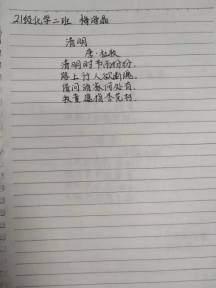 21级化学二班 梅海晶
清明
唐·杜牧
清明时节雨纷纷,
路上行人欲断魂。
借问酒家何处有,
牧童遥指杏花村.